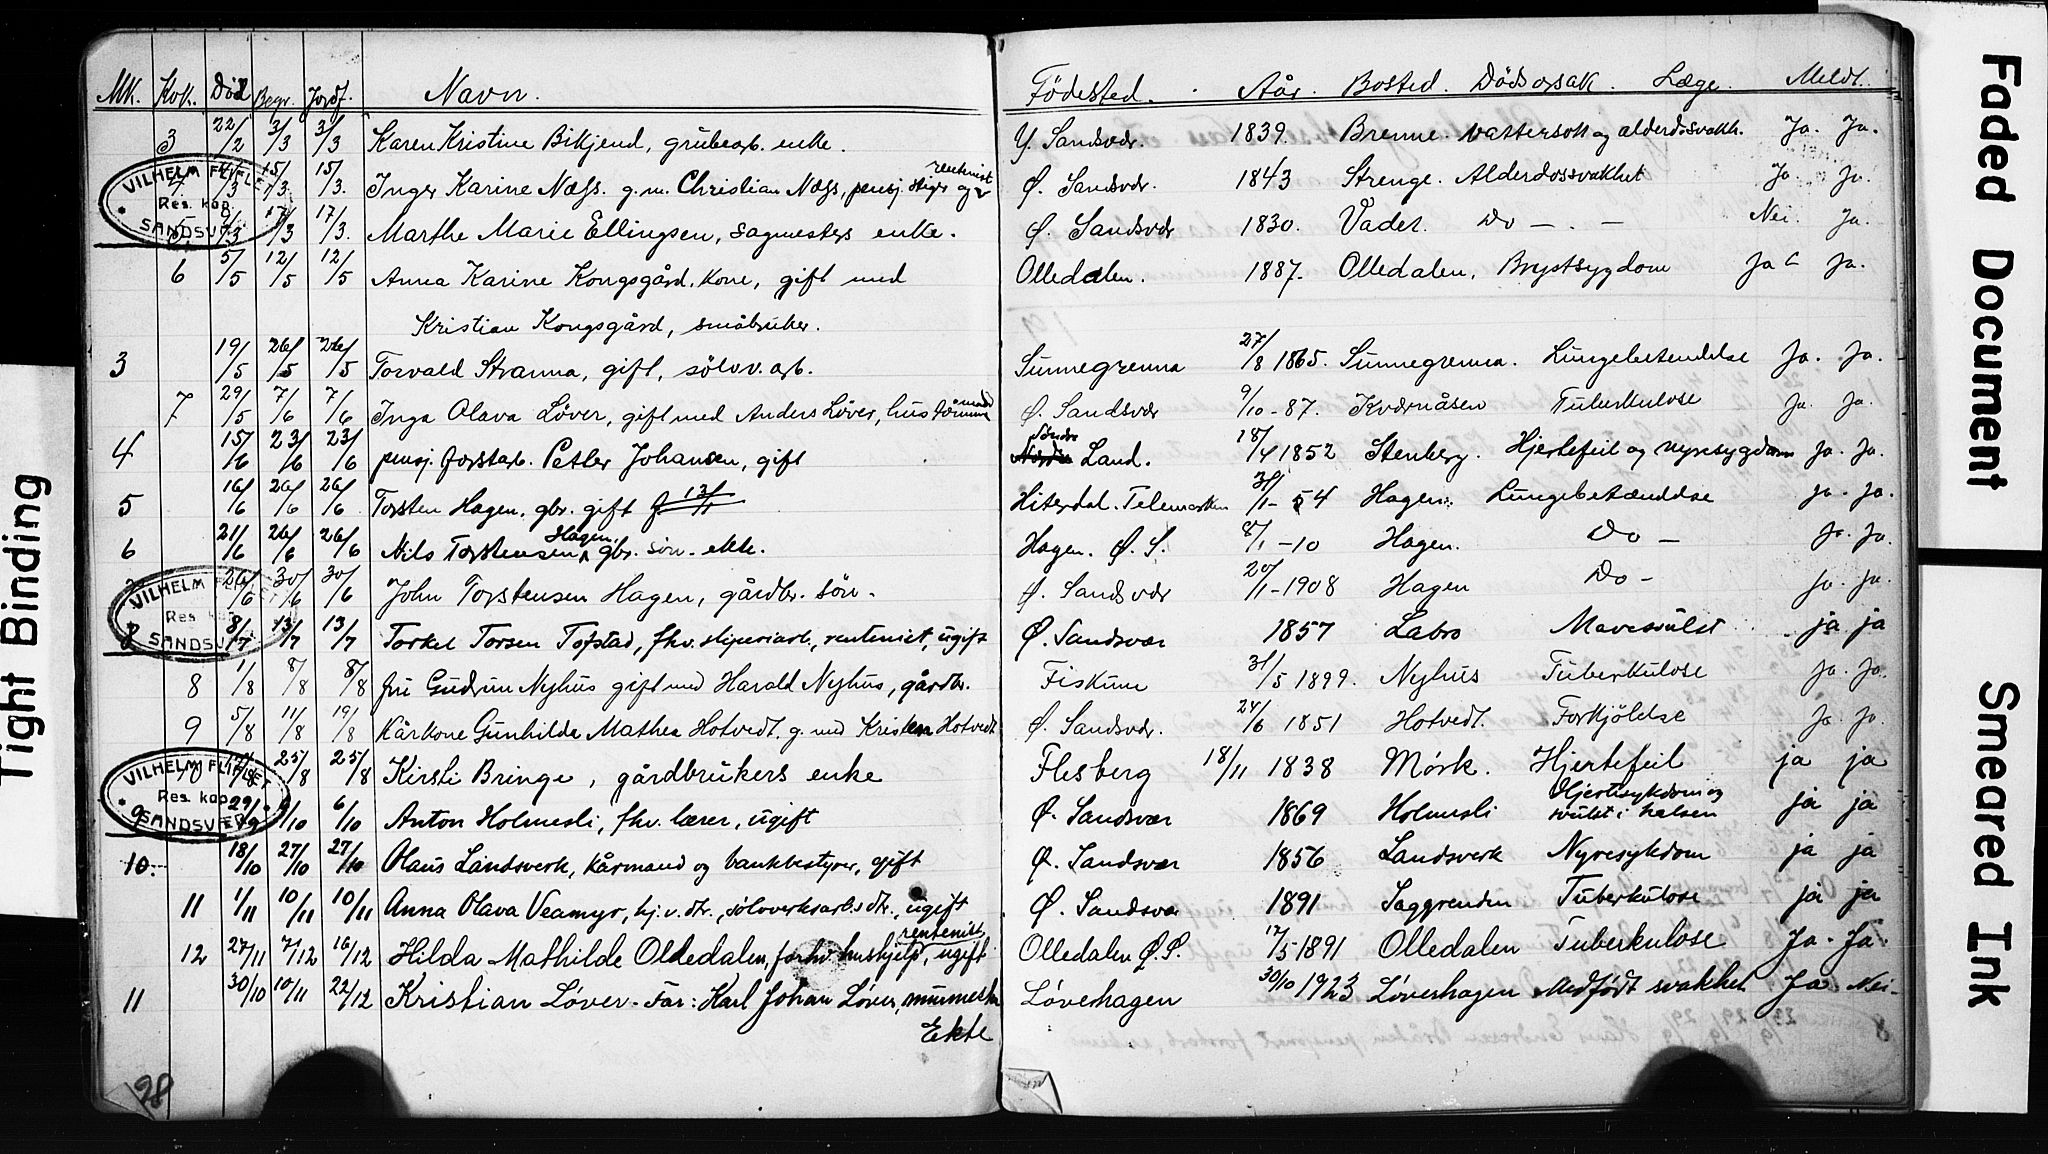 Mk. Kvk. Död Begr. Jordf. Navn. Födested. Aår. Bosted. Dödsorsak. Læge. Meldt.
3 22/2 3/3 3/3 Karen Kristine Bikjend, grubearb. enke. Y. Sandsvær. 1839. Brenne. Vattersott og alderdosvakh. Ja. Ja.
rentenist
4 4/3 15/3 15/3. Inger Karine Næss. g. m. Christian Næss, pensj. stiger og Ø. Sandsvær. 1843 Strenge. Alderdossvakhet Ja. Ja.
5. 9/3 17/3 17/3. Marthe Marie Ellingsen, sagmesters enke. Ø. Sandsvær 1830. Vader. Do — . — Nei. Ja.
6 5/5 12/5 12/5 Anna Karine Kongsgård, kone, gift med Olledalen. 1887. Olledalen, Brystsygdom Ja Ja.
Kristian Kongsgård, småbruker.
3 19/5 26/5 26/5 Torvald Stranna, gift, sölvv. arb. Sunnegrenna 27/8 1865. Sunnegrenna. Lungebetendelse Ja. Ja.
7 29/5 7/6 7/6 Inga Olava Løver, gift med Anders Løver, hustömmermand Ø. Sandsvær 9/10 - 87. Kværnåsen Tuberkulose Ja. Ja.
4 15/6 23/6 23/6 pensj. forstarb. Petter Johansen, gift Nordre Søndre Land. 18/4 1852 Stenberg. Hjertefeil og nyresygdom Ja. Ja.
5 16/6 26/6 26/6 Torsten Hagen. gbr. gift f 13/1 Hiterdal. Telemarken 31/1 - 54 Hagen. Lungebetænddse Ja. Ja.
6 21/6 26/6 26/6 Nils Torstensen Hagen, gbr. sön. ekte. Hagen. Ø. S. 8/1 - 10 Hagen. Do — Ja. Ja.
26/6 30/6 30/6 John Torstensen Hagen, gårdbr. sön. Ø. Sandsvær 20/1 - 1908 Hagen Do - Ja. Ja.
8 8/7 13/7 13/7 Torkel Torsen Tofstad, fhv. sliperiarb., rentenist, ugift Ø. Sandsvær 1857 Labro Mavesvulst ja ja
8 1/8 8/8 8/8 fru Gudrun Nyhus gift med Harald Nyhus, gårdbr. Fiskum 31/5 1899. Nyhus Tuberkulose Ja. Ja.
9 5/8 11/8 19/8 Kårkone Gunhilde Mathea Hotvedt. g. med Kristen Hotvedt Ø. Sandsvær. 24/6 1851 Hotvedt. Forkjölelse Ja. Ja.
10 25/8 25/8 Kirsti Bringe, gårdbrukers enke Flesberg 18/11 1838 Mørk. Hjertefeil ja ja
9 29/9 6/10 6/10 Anton Holmesli, fhv. lærer, ugift Ø. Sandsvær 1869 Holmesli Hjertesykdom og svulst i halsen ja ja
10. 18/10 27/10 27/10 Olaus Landsverk, kårmand og bankbestyrer, gift Ø. Sandsvær 1856 Landsverk Nyresykdom ja ja
11 1/11 10/11 10/11 Anna Olava Veamyr, hj. v. dtr., sölvverksarb.s dtr., ugift Ø. Sandsvær 1891 Saggrenden Tuberkulose ja ja
rentenist
12 27/11 7/12 16/12 Hilda Mathilde Olledalen, forhv. hushjelp, ugift Olledalen Ø. S. 17/5 1891 Olledalen Tuberkulose Ja. Ja.
11 30/10 10/11 22/12 Kristian Løver. Far: Karl Johan Løver, murmester Løverhagen 30/10 1923 Løverhagen Medfødt svakhet Ja Nei.
Ekte
28
VILHELM FLIFLET
Res. kap.
SANDSVÆR
VILHELM FLIFLET
Res. kap.
SANDSVÆR
VILHELM FLIFLET
Res. kap.
SANDSVÆR
Tight Binding
Faded Document
Smeared Ink